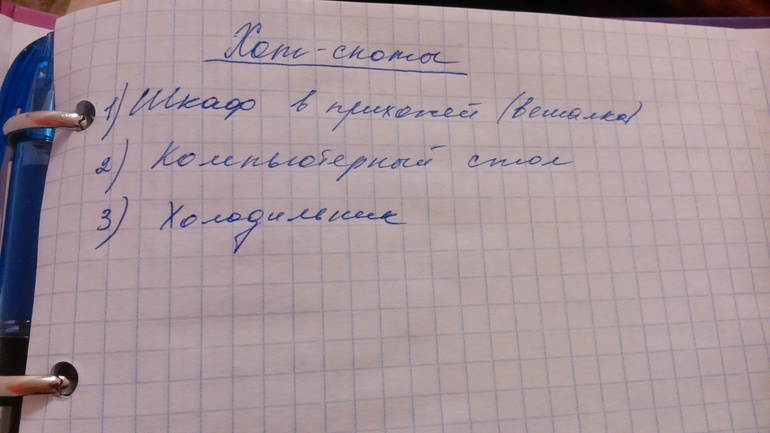 Хот-споты
1) Шкаф в прихожей (вешалка)
2) Компьютерный стол
3) Холодильник